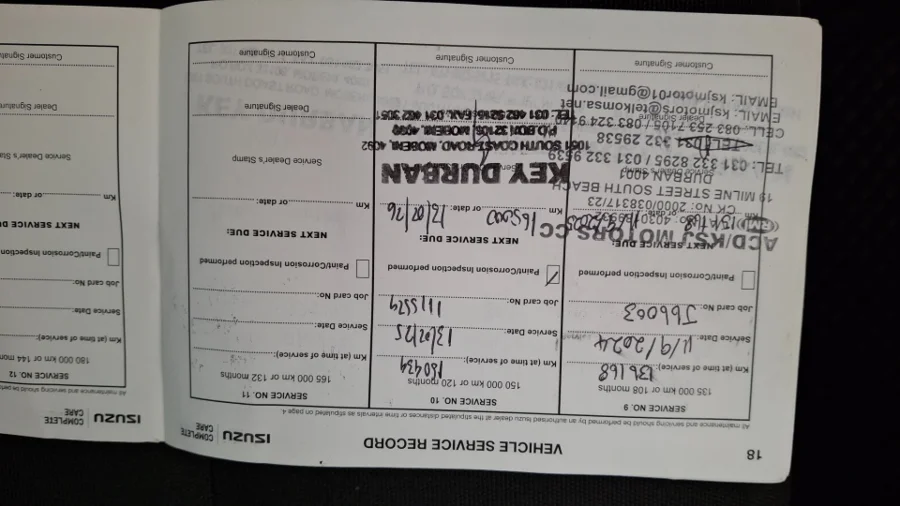 18
VEHICLE SERVICE RECORD
ISUZU
COMPLETE
CARE
All maintenance and servicing should be performed by an authorised Isuzu dealer at the stipulated distances or time intervals as stipulated on page 4
SERVICE NO. 9
135 000 km or 108 months
Km (at time of service): 136 168
Service Date: 11/9/2024
Job card No: J66063
Paint/Corrosion Inspection performed
NEXT SERVICE DUE:
ACD/KSJ MOTORS CC
CK No: 2000/038317/23
19 MILNE STREET SOUTH BEACH
DURBAN 4001
TEL: 031 332 8295 / 031 332 9539
332 29538
CELL: 083 253 7105 / 083 324 9140
EMAIL: ksjmotors@telkomsa.net
EMAIL: ksjmotor01@gmail.com
Customer Signature
SERVICE NO. 10
150 000 km or 120 months
Km (at time of service): 150434
Service Date: 13/02/25
Job card No: 1115579
Paint/Corrosion Inspection performed
NEXT SERVICE DUE:
Km 165000 or date: 12/02/26
KEY DURBAN
1051 SOUTH COAST ROAD, MOBENI, 4092
P.O.BOX 32105, MOBENI, 4092
Customer Signature
SERVICE NO. 11
165 000 km or 132 months
Km (at time of service):
Service Date:
Job card No:
Paint/Corrosion Inspection performed
NEXT SERVICE DUE:
Km or date:
Service Dealer's Stamp
Dealer Signature
Customer Signature
ISUZU
COMPLETE
CARE
All maintenance and servicing should be
SERVICE NO. 12
180 000 km or 144
Km (at time of service):
Service Date:
Job card No:
Paint/Corrosion Inspection
NEXT SERVICE DUE
Km or date:
Service Dealer's
Dealer Signature
Customer